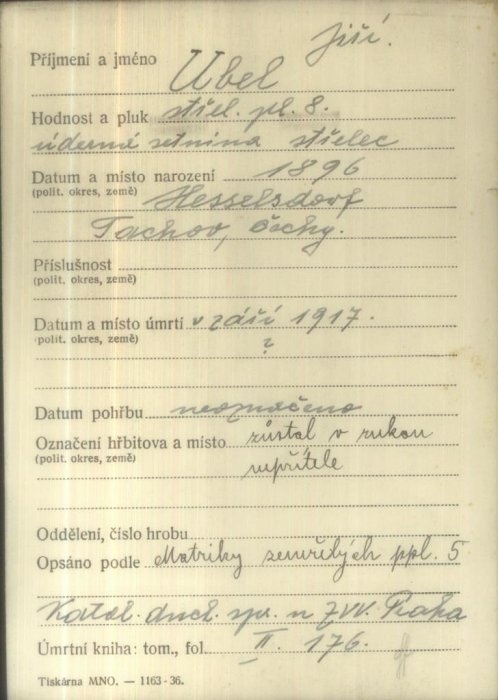 Jiří.
Příjmení a jméno Ubel
Hodnost a pluk střel. pl. 8.
úderná setnina střelec
Datum a místo narození 1896
(polit. okres, země) Hesselsdorf
Tachov, Čechy.
Příslušnost
(polit. okres, země)
Datum a místo úmrtí v září 1917.
(polit. okres, země) ?
Datum pohřbu neoznačeno
Označení hřbitova a místo zůstal v rukou
(polit. okres, země) nepřítele
Oddělení, číslo hrobu
Opsáno podle Matriky zemřelých ppl. 5
Katol. duch. spr. u ZVV. Praha
Úmrtní kniha: tom., fol. II. 176.
Tiskárna MNO. — 1163-36.